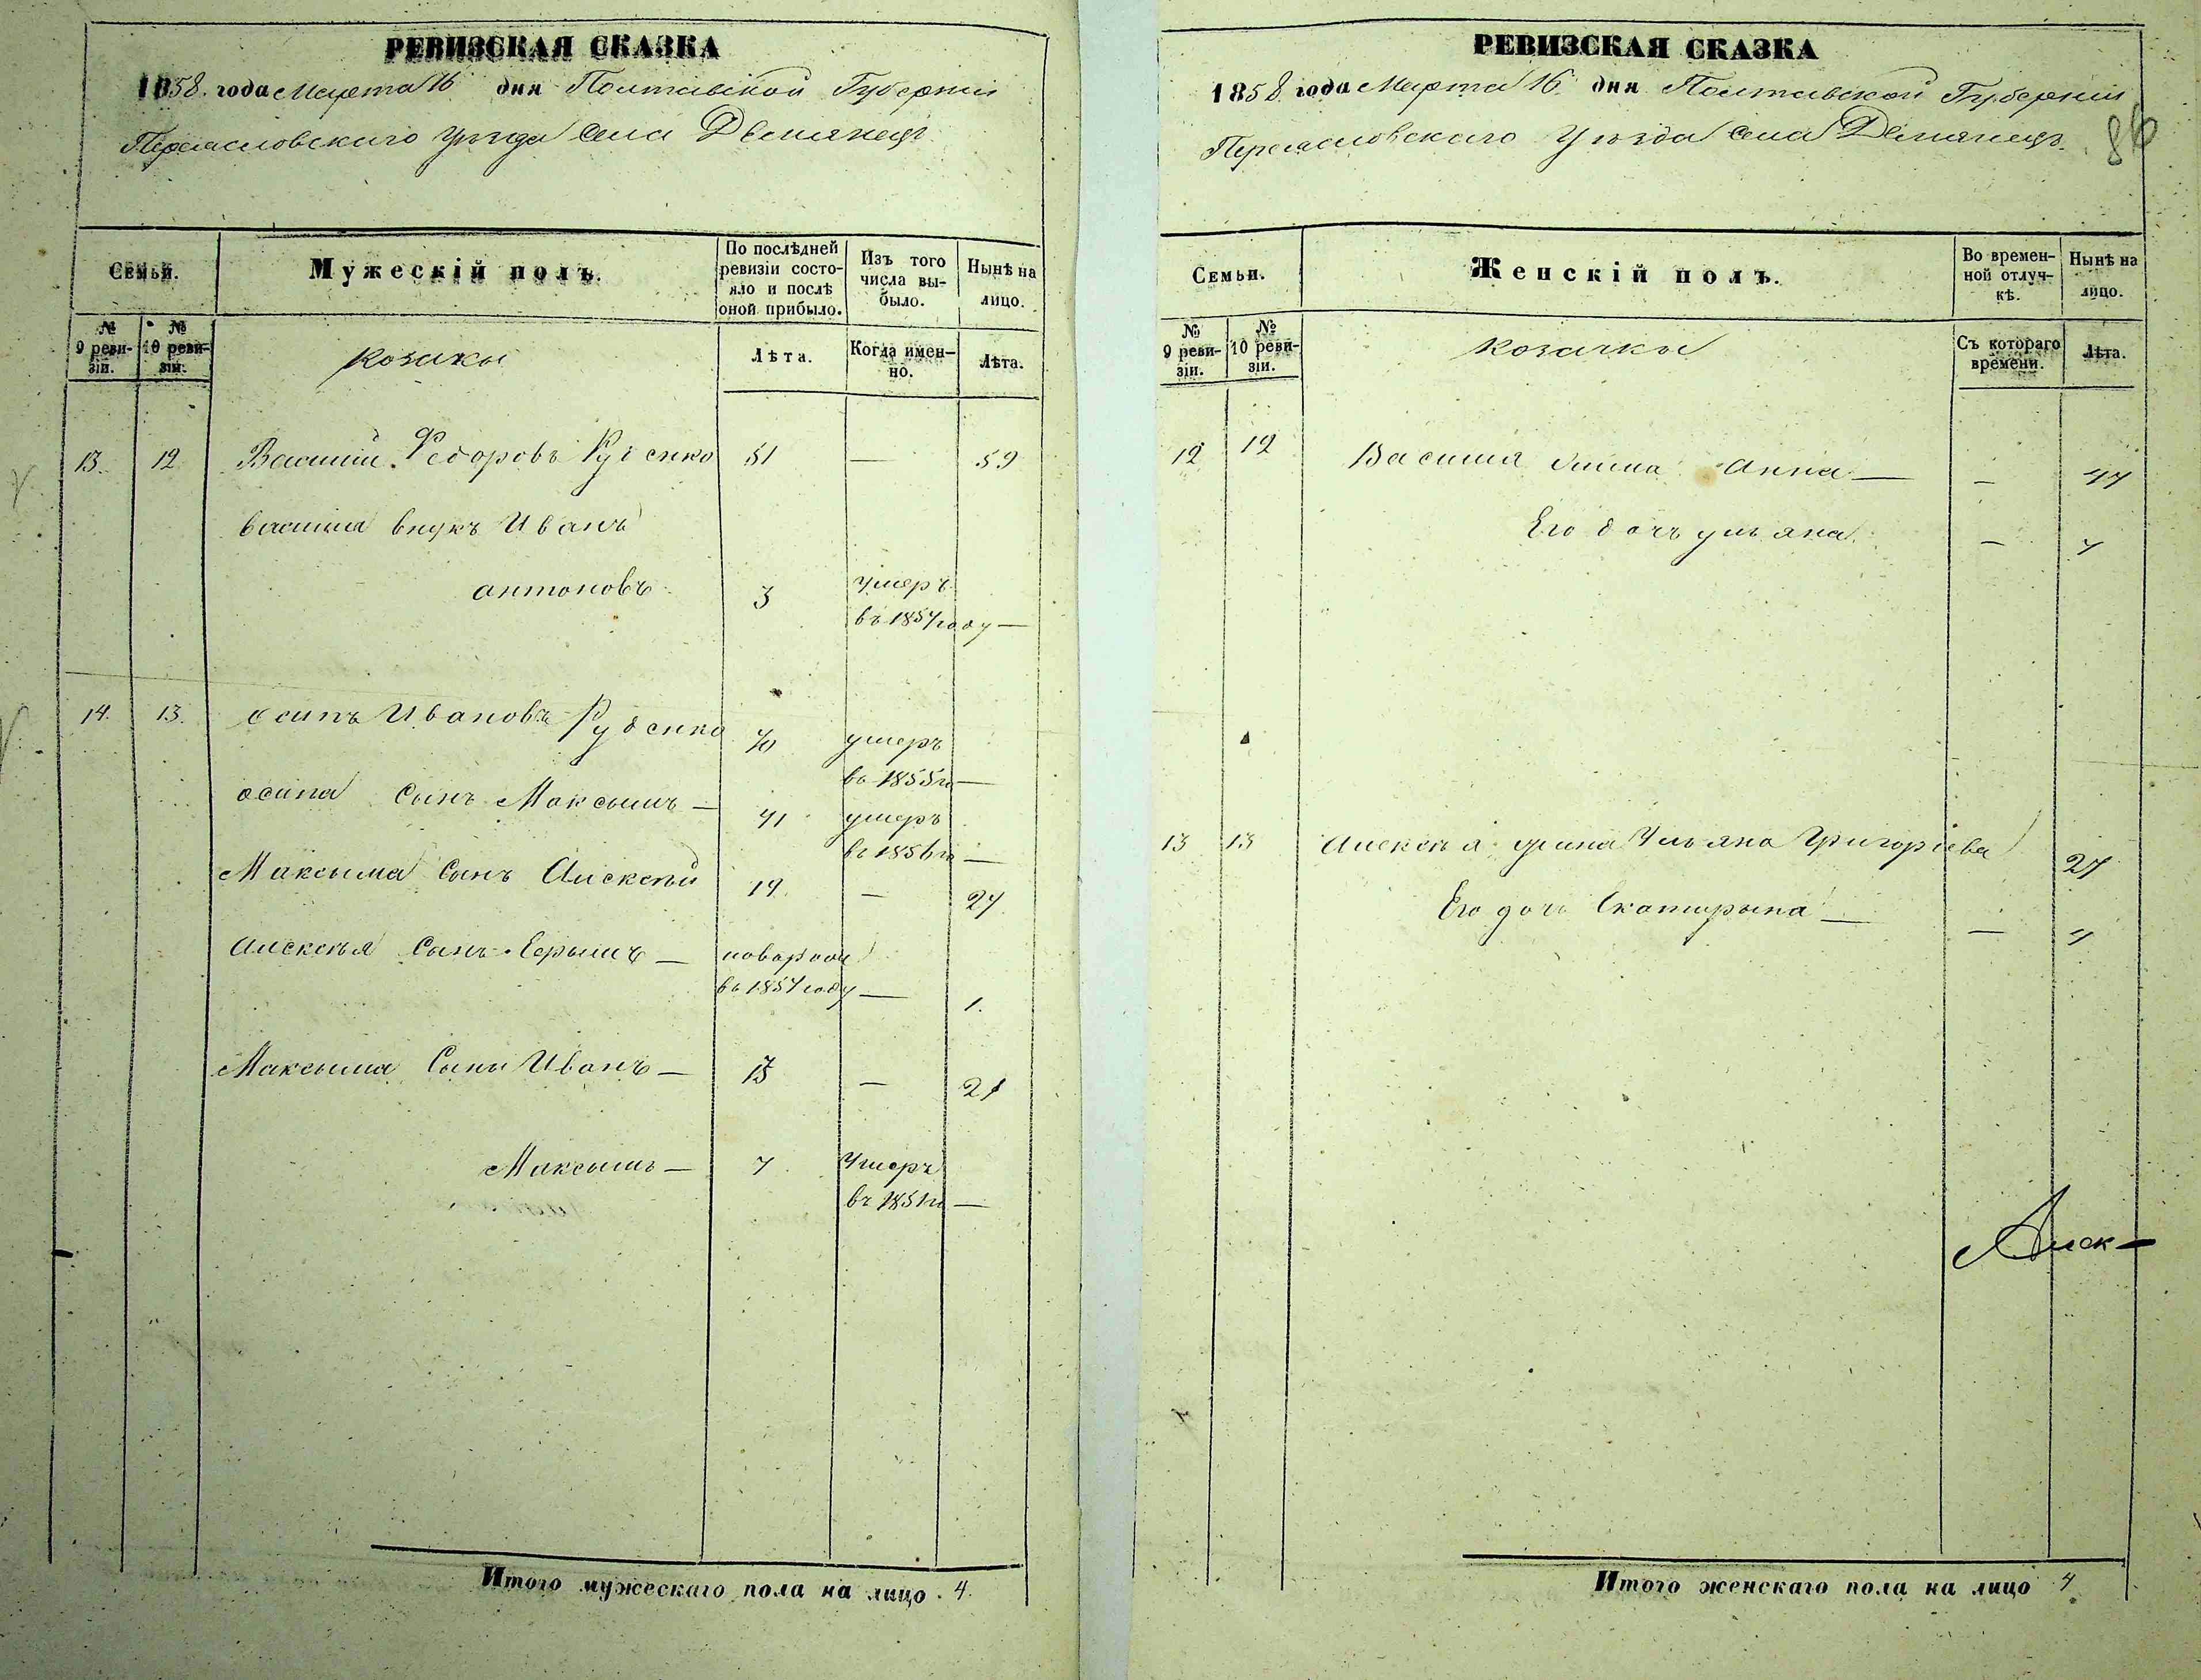 РЕВИЗСКАЯ СКАЗКА
1858. года Марта 16 дня Полтавской Губернии
Переясловскаго уѣзда Села Демянецъ
Семьи. Мужескій полъ. По послѣдней ревизіи состояло и послѣ оной прибыло. Изъ того числа выбыло. Нынѣ на лицо.
№ 9 ревизіи. № 10 ревизіи. козаки Лѣта. Когда именно. Лѣта.
13. 12 Василий Федоровъ Руденко 51 — 59
василия внукъ Иванъ
антоновъ 3 умеръ
въ 1857 году —
14. 13. осипъ Ивановъ Руденко 70 умеръ
въ 1855 го —
осипа Сынъ Максымъ — 41 умеръ
въ 1856 го —
Максыма Сынъ Алексѣй 19 — 27
Алексѣя Сынъ Ефрымъ —
въ 1857 году — 1.
Максыма Сынъ Иванъ — 13 — 21
Максымъ — 7 Умеръ
въ 1851 го —
Итого мужескаго пола на лицо 4.
РЕВИЗСКАЯ СКАЗКА
1858 года Марта 16 дня Полтавской Губерніи
Переясловскаго Уѣзда Села Демянецъ. 86
Семьи. Женскій полъ. Во временной отлучкѣ. Нынѣ на лицо.
№ 9 ревизіи. № 10 ревизіи. козачки Съ котораго времени. Лѣта.
12 12 Василия жина Анна — — 47
Его дочъ ульяна — 7
13 13 Алексѣя жина Ульяна Григоріева 27
Его дочъ Екатирына — — 4
Алек—
Итого женскаго пола на лицо 4